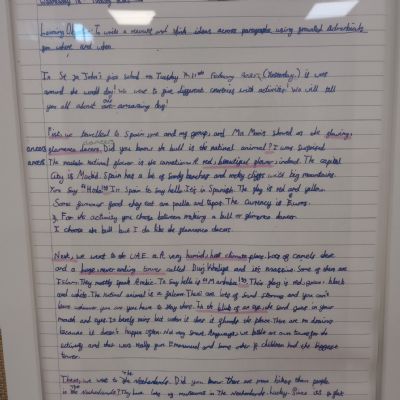 Learning Objective: To write a recount and link ideas across paragraphs using fronted adverbials
for where and when.
In St John's pies school on Tuesday 11th February (Yesterday.) it was
around the world day! We were to give different countries with activities! We will tell
you all about our amazing day!
First, we travelled to Spain me and my group, and showed us the
flamenco dancers. Did you know the bull is the national animal? I was surprised
The national flower is the carnation. A red, beautiful flower, indeed. The capital
City is Madrid. Spain has a lot of sandy beaches and rocky cliffs with big mountains.
You say "Hola" In Spain to say hello. It's in Spanish. The flag is red and yellow.
Some famous food they eat are paella and tapas. The currency is Euros.
For the activity you choose between making a bull or flamenco dancer.
I choose the bull but I do like the flamenco dancers.
Next, we went to the U.A.E. A very humid, hot climate place. Lots of camels there
and a huge, never ending tower called Burj Khalifa and it's massive. Some of them are
Islam. They mostly speak Arabic. To say hello is "Marhaba". Their flag is red, green, black
and white. The national animal is a falcon. There are lots of sand storms and you can't
leave wherever you are, you have to stay there. In the blink of an eye, the sand goes in your
mouth and eyes. It barely rains but when it does it floods the place. There are no drains
because it doesn't happen often. For the
activity and this was really fun. I and some other children had the biggest
tower.
Then, we went to the Netherlands. Did you know there are more bikes than people
in the Netherlands? They have lots of museums in The Netherlands.